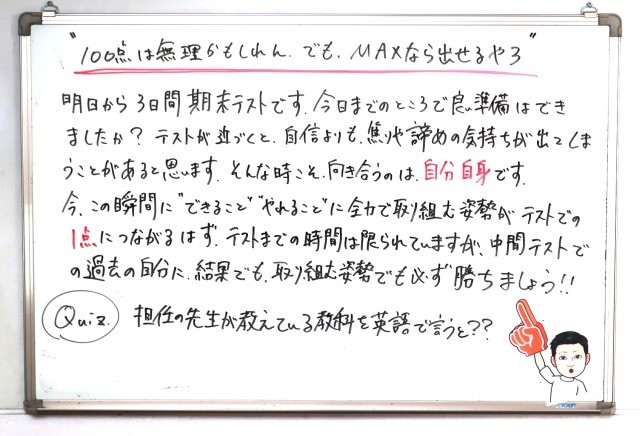 "100点は無理かもしれん. でも. MAXなら出せるやろ"
明日から3日間期末テストです. 今日までのところで良い準備はでき
ましたか? テストが近づくと. 自信よりも. 焦りや諦めの気持ちが出てしま
うことがあると思います. そんな時こそ. 向き合うのは. 自分自身です.
今、この瞬間に"できること""やれること"に全力で取り組む姿勢がテストでの
1点につながるはず. テストまでの時間は限られていますが、中間テストで
の過去の自分に. 結果でも. 取り組む姿勢でも必ず勝ちましょう!!
Quiz. 担任の先生が教えている教科を英語で言うと??